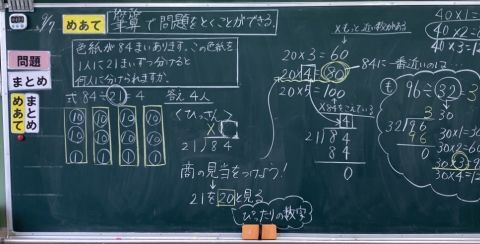 9/7
めあて
筆算で問題をとくことができる。
問題
まとめ
めあて
まとめ
色紙が84まいあります。この色紙を
1人に21まいずつ分けると
何人に分けられますか。
式 84÷21=4 答え 4人
10 10 10 10
10 10 10 10
1 1 1 1
<ひっさん>
21)84
商の見当をつけよう!
21を20と見る
ぴったりの数字
xもっと近い数がある
20×3=60
20×4=80
84に一番近いのは…
20×5=100
x84をこえている
4
21)84
84
0
40×1=
40×2=
40×3=12
も
96÷32=3
30
3
32)96
96
0
30×1=30
30×2=60
30×3=9
30×4=12